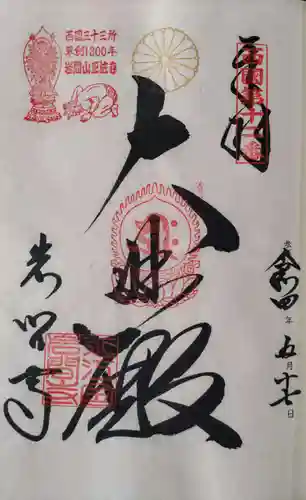 奉拝
西国第十二番
令和四年五月十七日
西国三十三所
草創1300年
岩間山正法寺
大悲殿
岩間寺